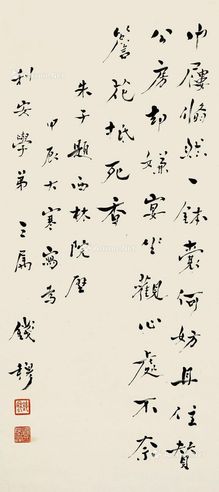 巾屨翛然一鉢囊何妨且住贊
公房却嫌宴坐觀心處不奈
簷花抵死香
朱子題西林院壁
甲辰大寒寫為
利安學弟 三屬 錢穆